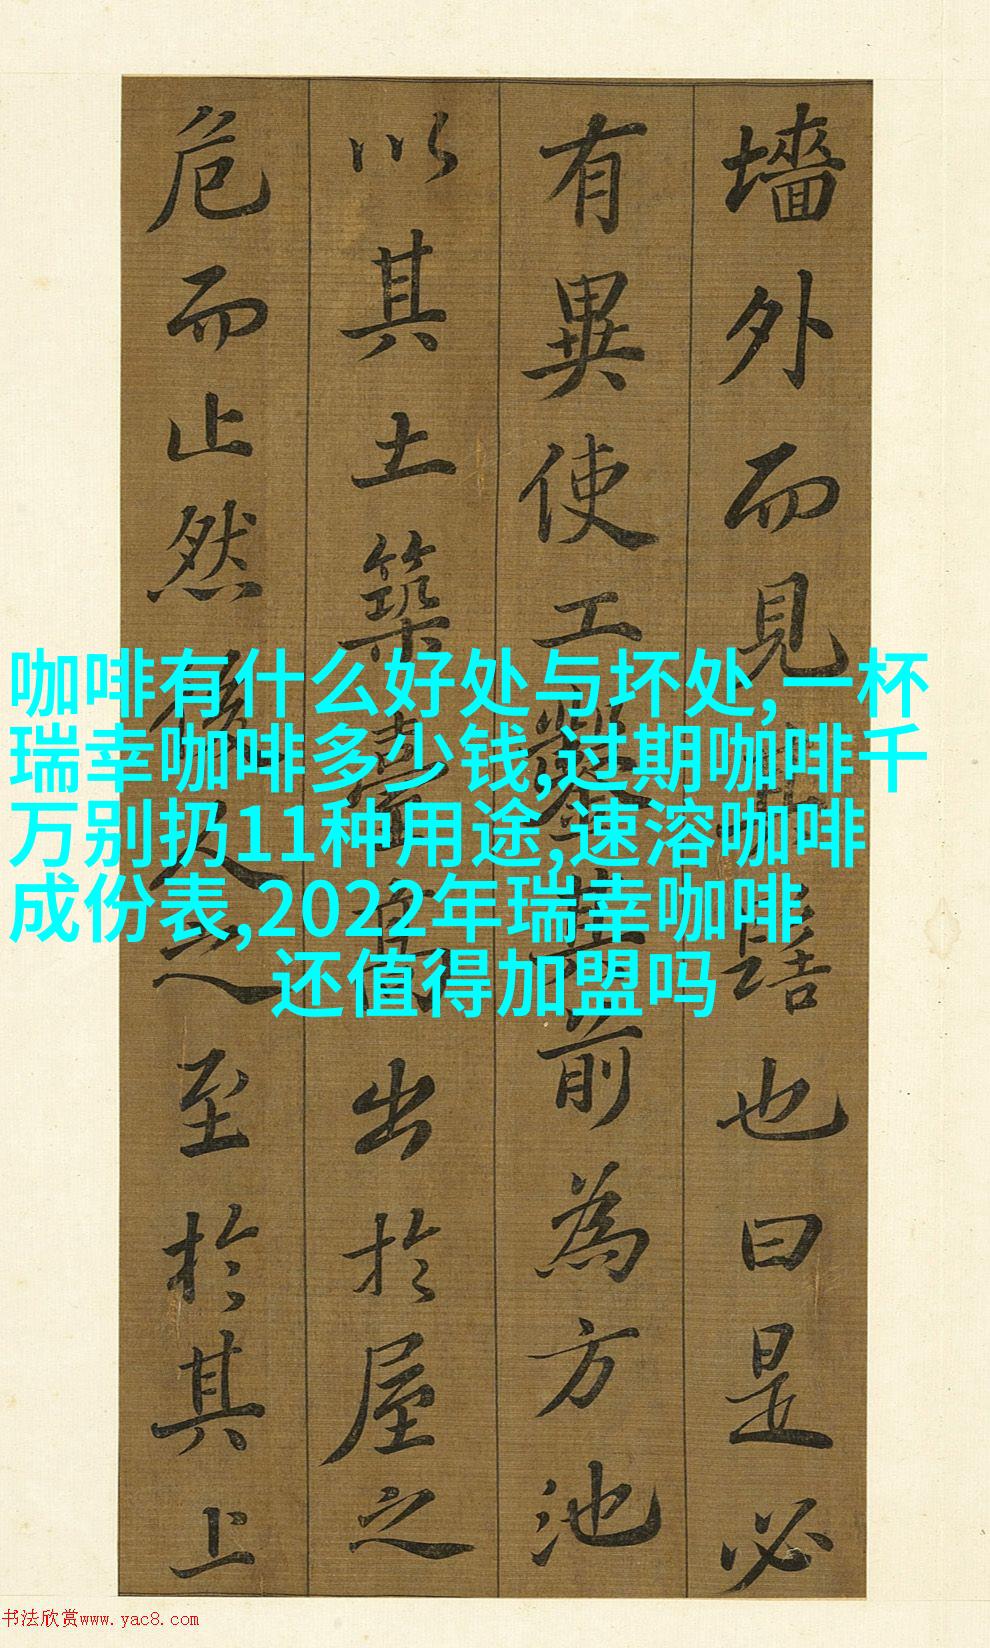 墻外而見其髻也曰是必
有異使工鑿其前為方池
以其土築臺高出於屋之
危而止然後人之至於其上
咖啡有什么好处与坏处,一杯
瑞幸咖啡多少钱,过期咖啡千
万别扔11种用途,速溶咖啡
成份表,2022年瑞幸咖啡
还值得加盟吗
书法欣赏www.yac8.com